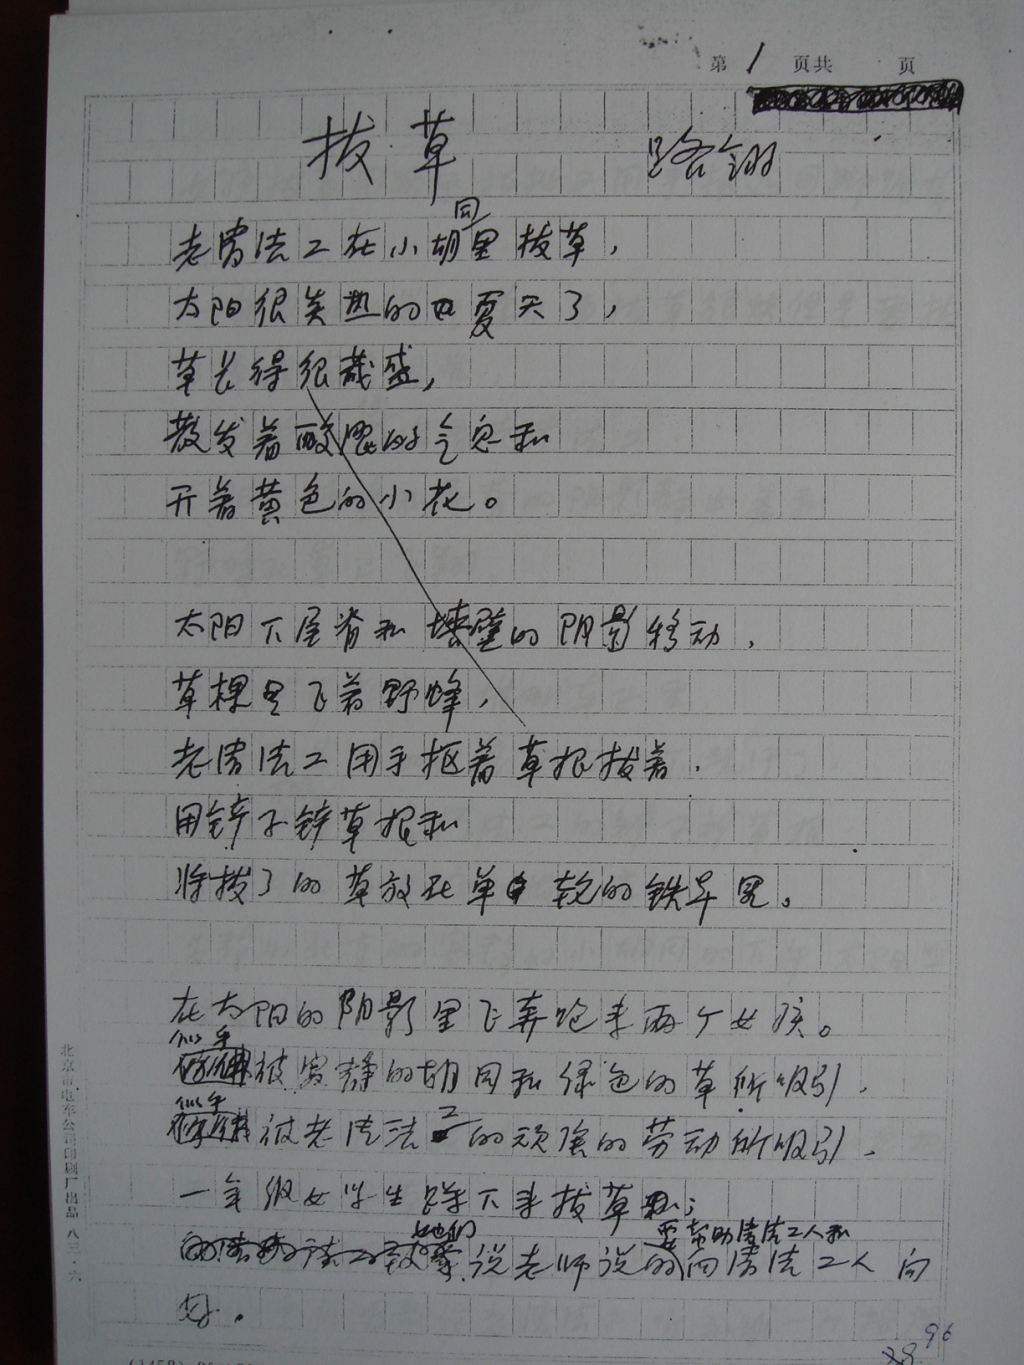 第 1 页共 页
拔草 路翎
老清洁工在小胡同里拔草，
太阳很炎热的夏天了，
草长得很茂盛，
散发着酸涩的气息和
开着黄色的小花。
太阳下屋脊和墙壁的阴影移动，
草棵里飞着野蜂，
老清洁工用手抠着草根拔着，
用铲子铲草根和
将拔了的草放在单 的铁斗里。
在太阳的阴影里飞奔跑来两个女孩。
似乎被寂静的胡同和绿色的草所吸引，
似乎被老清洁工的顽强的劳动所吸引，
一年级女学生蹲下来拔草；
她们说老师说的要帮助清洁工人和向清洁工人问
好。
北京市电车公司印刷厂出品 八三·六
96